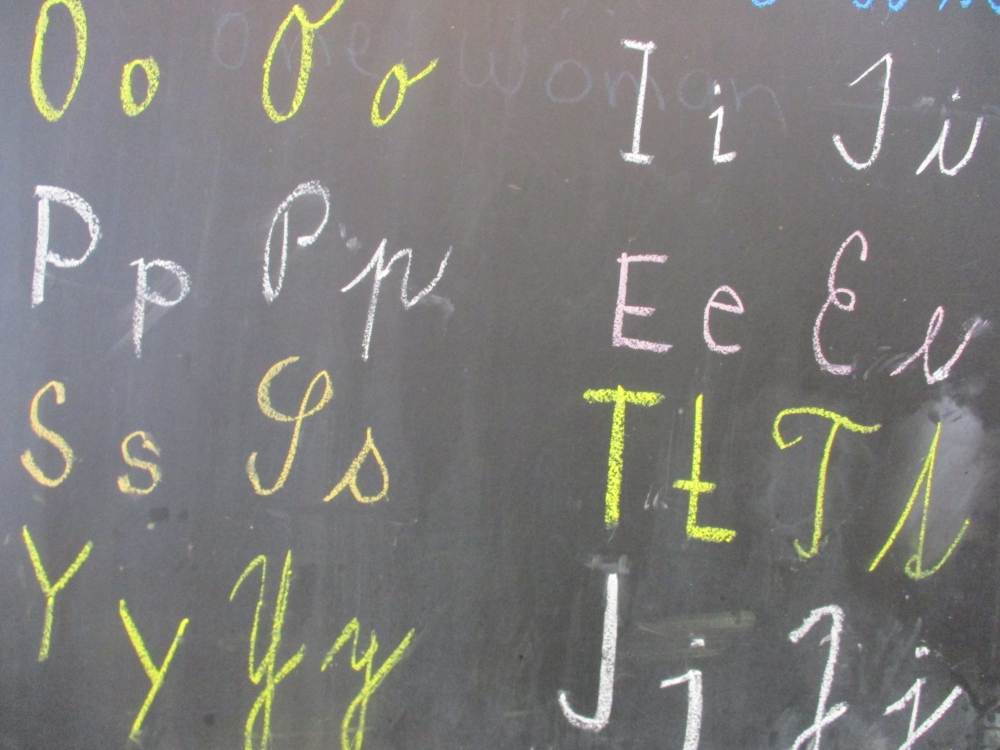 O o O o
P p P p
S s S s
Y y Y y
I i I i
E e E e
T t T t
J j J j
woman